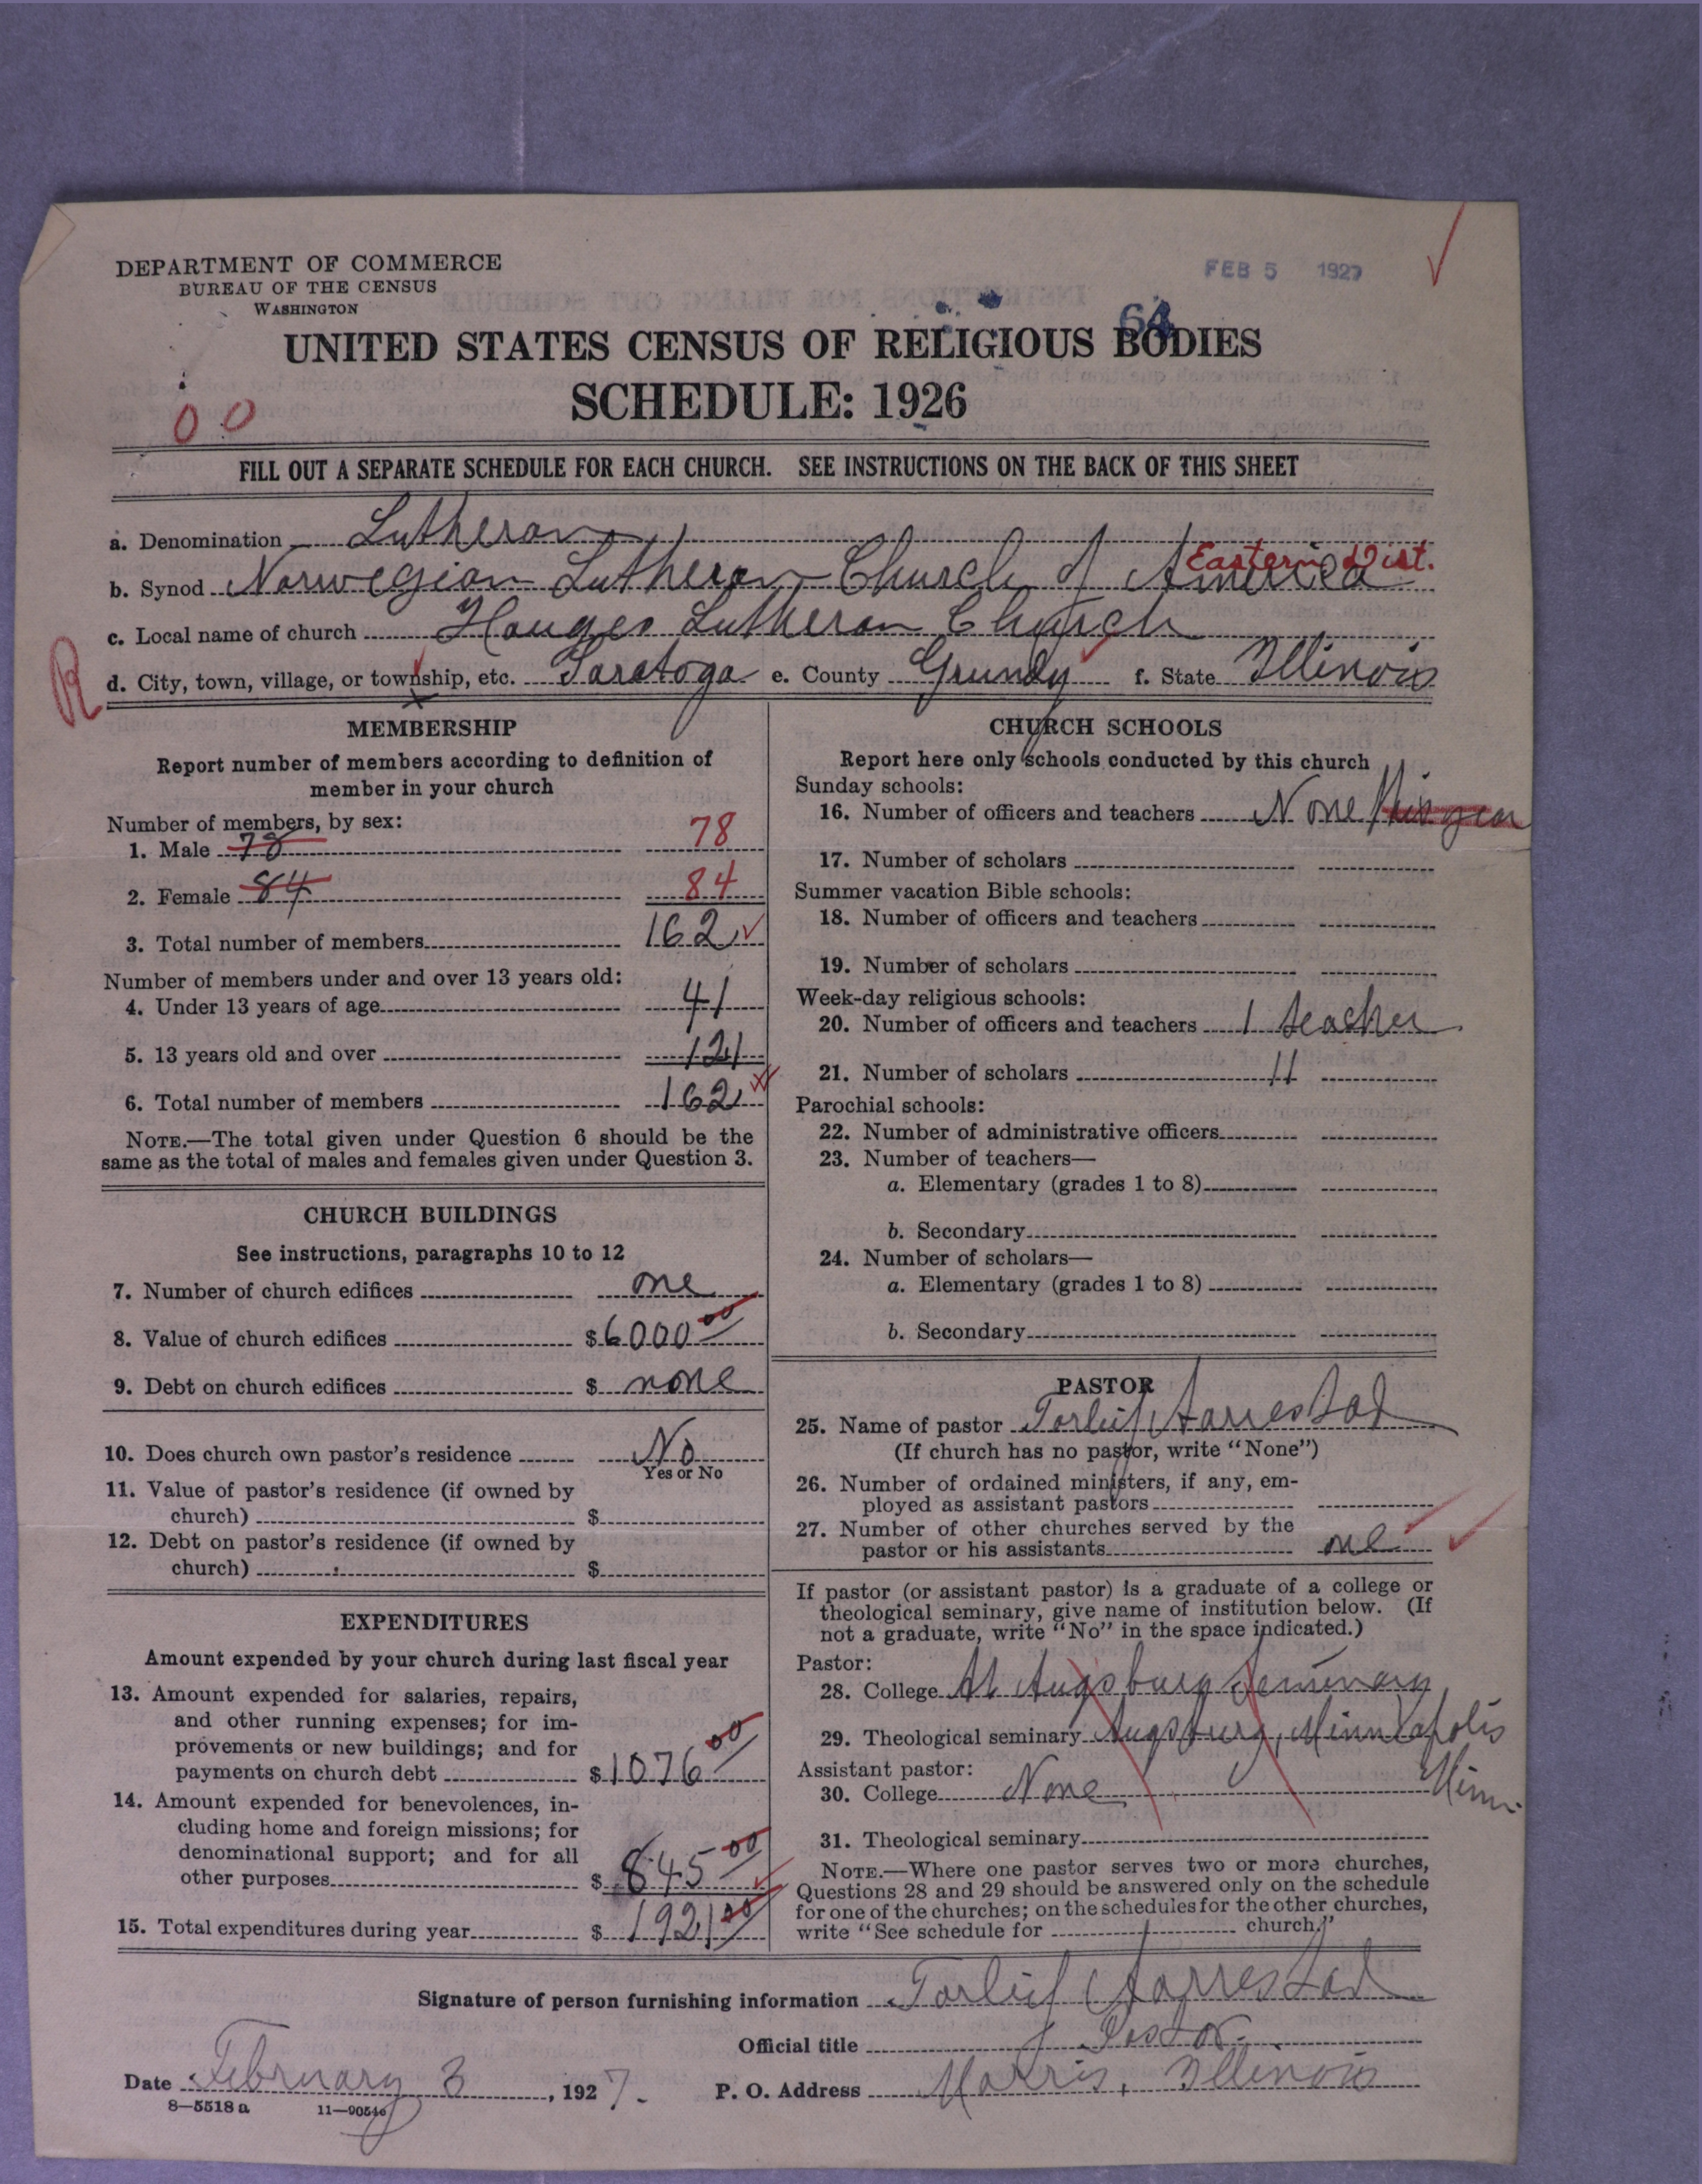 DEPARTMENT OF COMMERCE
BUREAU OF THE CENSUS
WASHINGTON
FEB 5 1927
64
UNITED STATES CENSUS OF RELIGIOUS BODIES
SCHEDULE: 1926
00
FILL OUT A SEPARATE SCHEDULE FOR EACH CHURCH. SEE INSTRUCTIONS ON THE BACK OF THIS SHEET
a. Denomination Lutheran
Eastern Dist.
b. Synod Norwegian Lutheran Church of America
c. Local name of church Hauges Lutheran Church
R
d. City, town, village, or township, etc. Saratoga e. County Grundy f. State Illinois
MEMBERSHIP
Report number of members according to definition of
member in your church
Number of members, by sex:
1. Male 78 78
2. Female 84 84
3. Total number of members 162
Number of members under and over 13 years old:
4. Under 13 years of age 41
5. 13 years old and over 121
6. Total number of members 162
NOTE.—The total given under Question 6 should be the
same as the total of males and females given under Question 3.
CHURCH BUILDINGS
See instructions, paragraphs 10 to 12
7. Number of church edifices one
8. Value of church edifices $6000 00
9. Debt on church edifices $ none
10. Does church own pastor's residence No
Yes or No
11. Value of pastor's residence (if owned by
church) $
12. Debt on pastor's residence (if owned by
church) $
EXPENDITURES
Amount expended by your church during last fiscal year
13. Amount expended for salaries, repairs,
and other running expenses; for im-
provements or new buildings; and for
payments on church debt $1076 00
14. Amount expended for benevolences, in-
cluding home and foreign missions; for
denominational support; and for all
other purposes $ 845 00
15. Total expenditures during year $ 1921 00
CHURCH SCHOOLS
Report here only schools conducted by this church
Sunday schools:
16. Number of officers and teachers None this year
17. Number of scholars
Summer vacation Bible schools:
18. Number of officers and teachers
19. Number of scholars
Week-day religious schools:
20. Number of officers and teachers 1 teacher
21. Number of scholars 11
Parochial schools:
22. Number of administrative officers
23. Number of teachers—
a. Elementary (grades 1 to 8)
b. Secondary
24. Number of scholars—
a. Elementary (grades 1 to 8)
b. Secondary
PASTOR
25. Name of pastor Torleif Aarrestad
(If church has no pastor, write "None")
26. Number of ordained ministers, if any, em-
ployed as assistant pastors
27. Number of other churches served by the
pastor or his assistants one
If pastor (or assistant pastor) is a graduate of a college or
theological seminary, give name of institution below. (If
not a graduate, write "No" in the space indicated.)
Pastor:
28. College At Augsburg Seminary
29. Theological seminary Augsburg, Minneapolis
Minn.
Assistant pastor:
30. College None
31. Theological seminary
NOTE.—Where one pastor serves two or more churches,
Questions 28 and 29 should be answered only on the schedule
for one of the churches; on the schedules for the other churches,
write "See schedule for church."
Signature of person furnishing information Torleif Aarrestad
Official title Pastor
Date February 3, 1927. P. O. Address Morris, Illinois
8—5518 a 11—90546